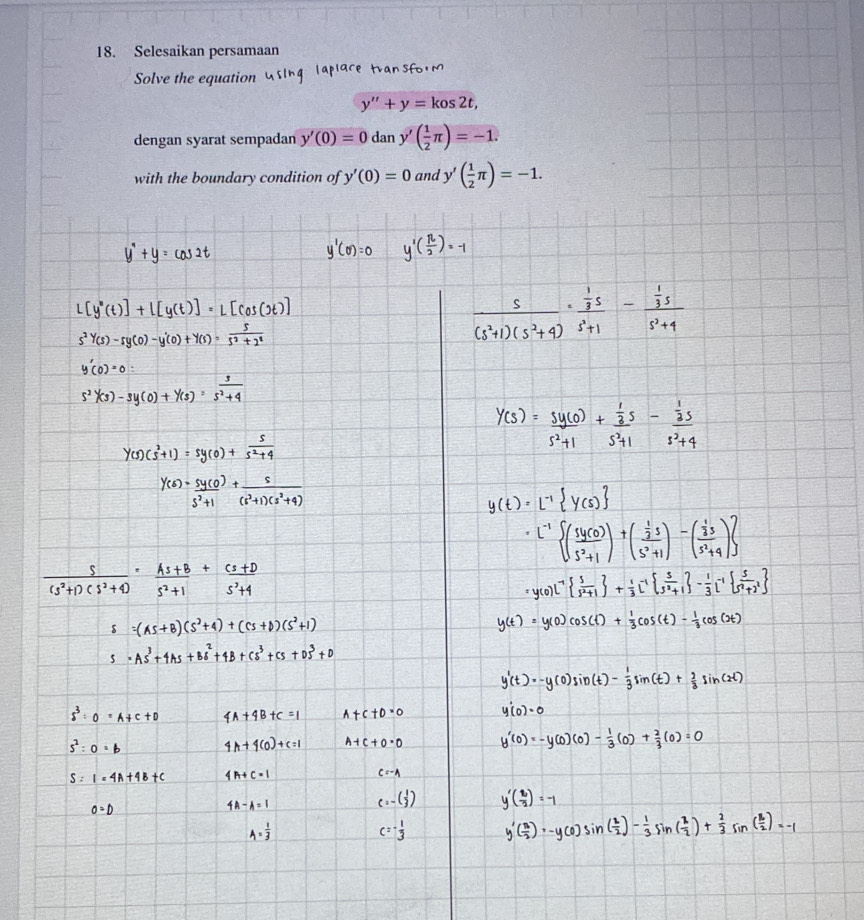 18. Selesaikan persamaan
Solve the equation using laplace transform
y'' + y = kos 2t,
dengan syarat sempadan y'(0) = 0 dan y'(1/2 π) = −1.
with the boundary condition of y'(0) = 0 and y'(1/2 π) = −1.
y" + y = cos 2t
y'(0)=0 y'(π/2) = -1
L[y"(t)] + L[y(t)] = L[cos(2t)]
s² Y(s) - sy(0) - y'(0) + Y(s) = s/(s² + 2²)
y'(0) = 0 :
s² Y(s) - sy(0) + Y(s) = s/(s²+4)
Y(s)(s²+1) = sy(0) + s/(s²+4)
Y(s) = sy(0)/(s²+1) + s/((s²+1)(s²+4))
s/((s²+1)(s²+4)) = (As+B)/(s²+1) + (Cs+D)/(s²+4)
s = (As+B)(s²+4) + (Cs+D)(s²+1)
s = As³ + 4As + Bs² + 4B + Cs³ + Cs + Ds³ + D
s³ : 0 = A + C + D
s² : 0 = B
s : 1 = 4A + 4B + C
0 = D
4A + 4B + C = 1
4A + 4(0) + C = 1
4A + C = 1
4A - A = 1
A = 1/3
A + C + D = 0
A + C + 0 = 0
C = -A
C = -(1/3)
C = -1/3
s/((s²+1)(s²+4)) = (1/3 s)/(s²+1) - (1/3 s)/(s²+4)
Y(s) = sy(0)/(s²+1) + (1/3 s)/(s²+1) - (1/3 s)/(s²+4)
y(t) = L⁻¹{Y(s)}
= L⁻¹{(sy(0)/(s²+1)) + ((1/3 s)/(s²+1)) - ((1/3 s)/(s²+4))}
= y(0)L⁻¹{s/(s²+1)} + 1/3 L⁻¹{s/(s²+1)} - 1/3 L⁻¹{s/(s²+2²)}
y(t) = y(0) cos(t) + 1/3 cos(t) - 1/3 cos(2t)
y'(t) = -y(0) sin(t) - 1/3 sin(t) + 2/3 sin(2t)
y'(0) = 0
y'(0) = -y(0)(0) - 1/3 (0) + 2/3 (0) = 0
y'(π/2) = -1
y'(π/2) = -y(0) sin(π/2) - 1/3 sin(π/2) + 2/3 sin(π/2) = -1